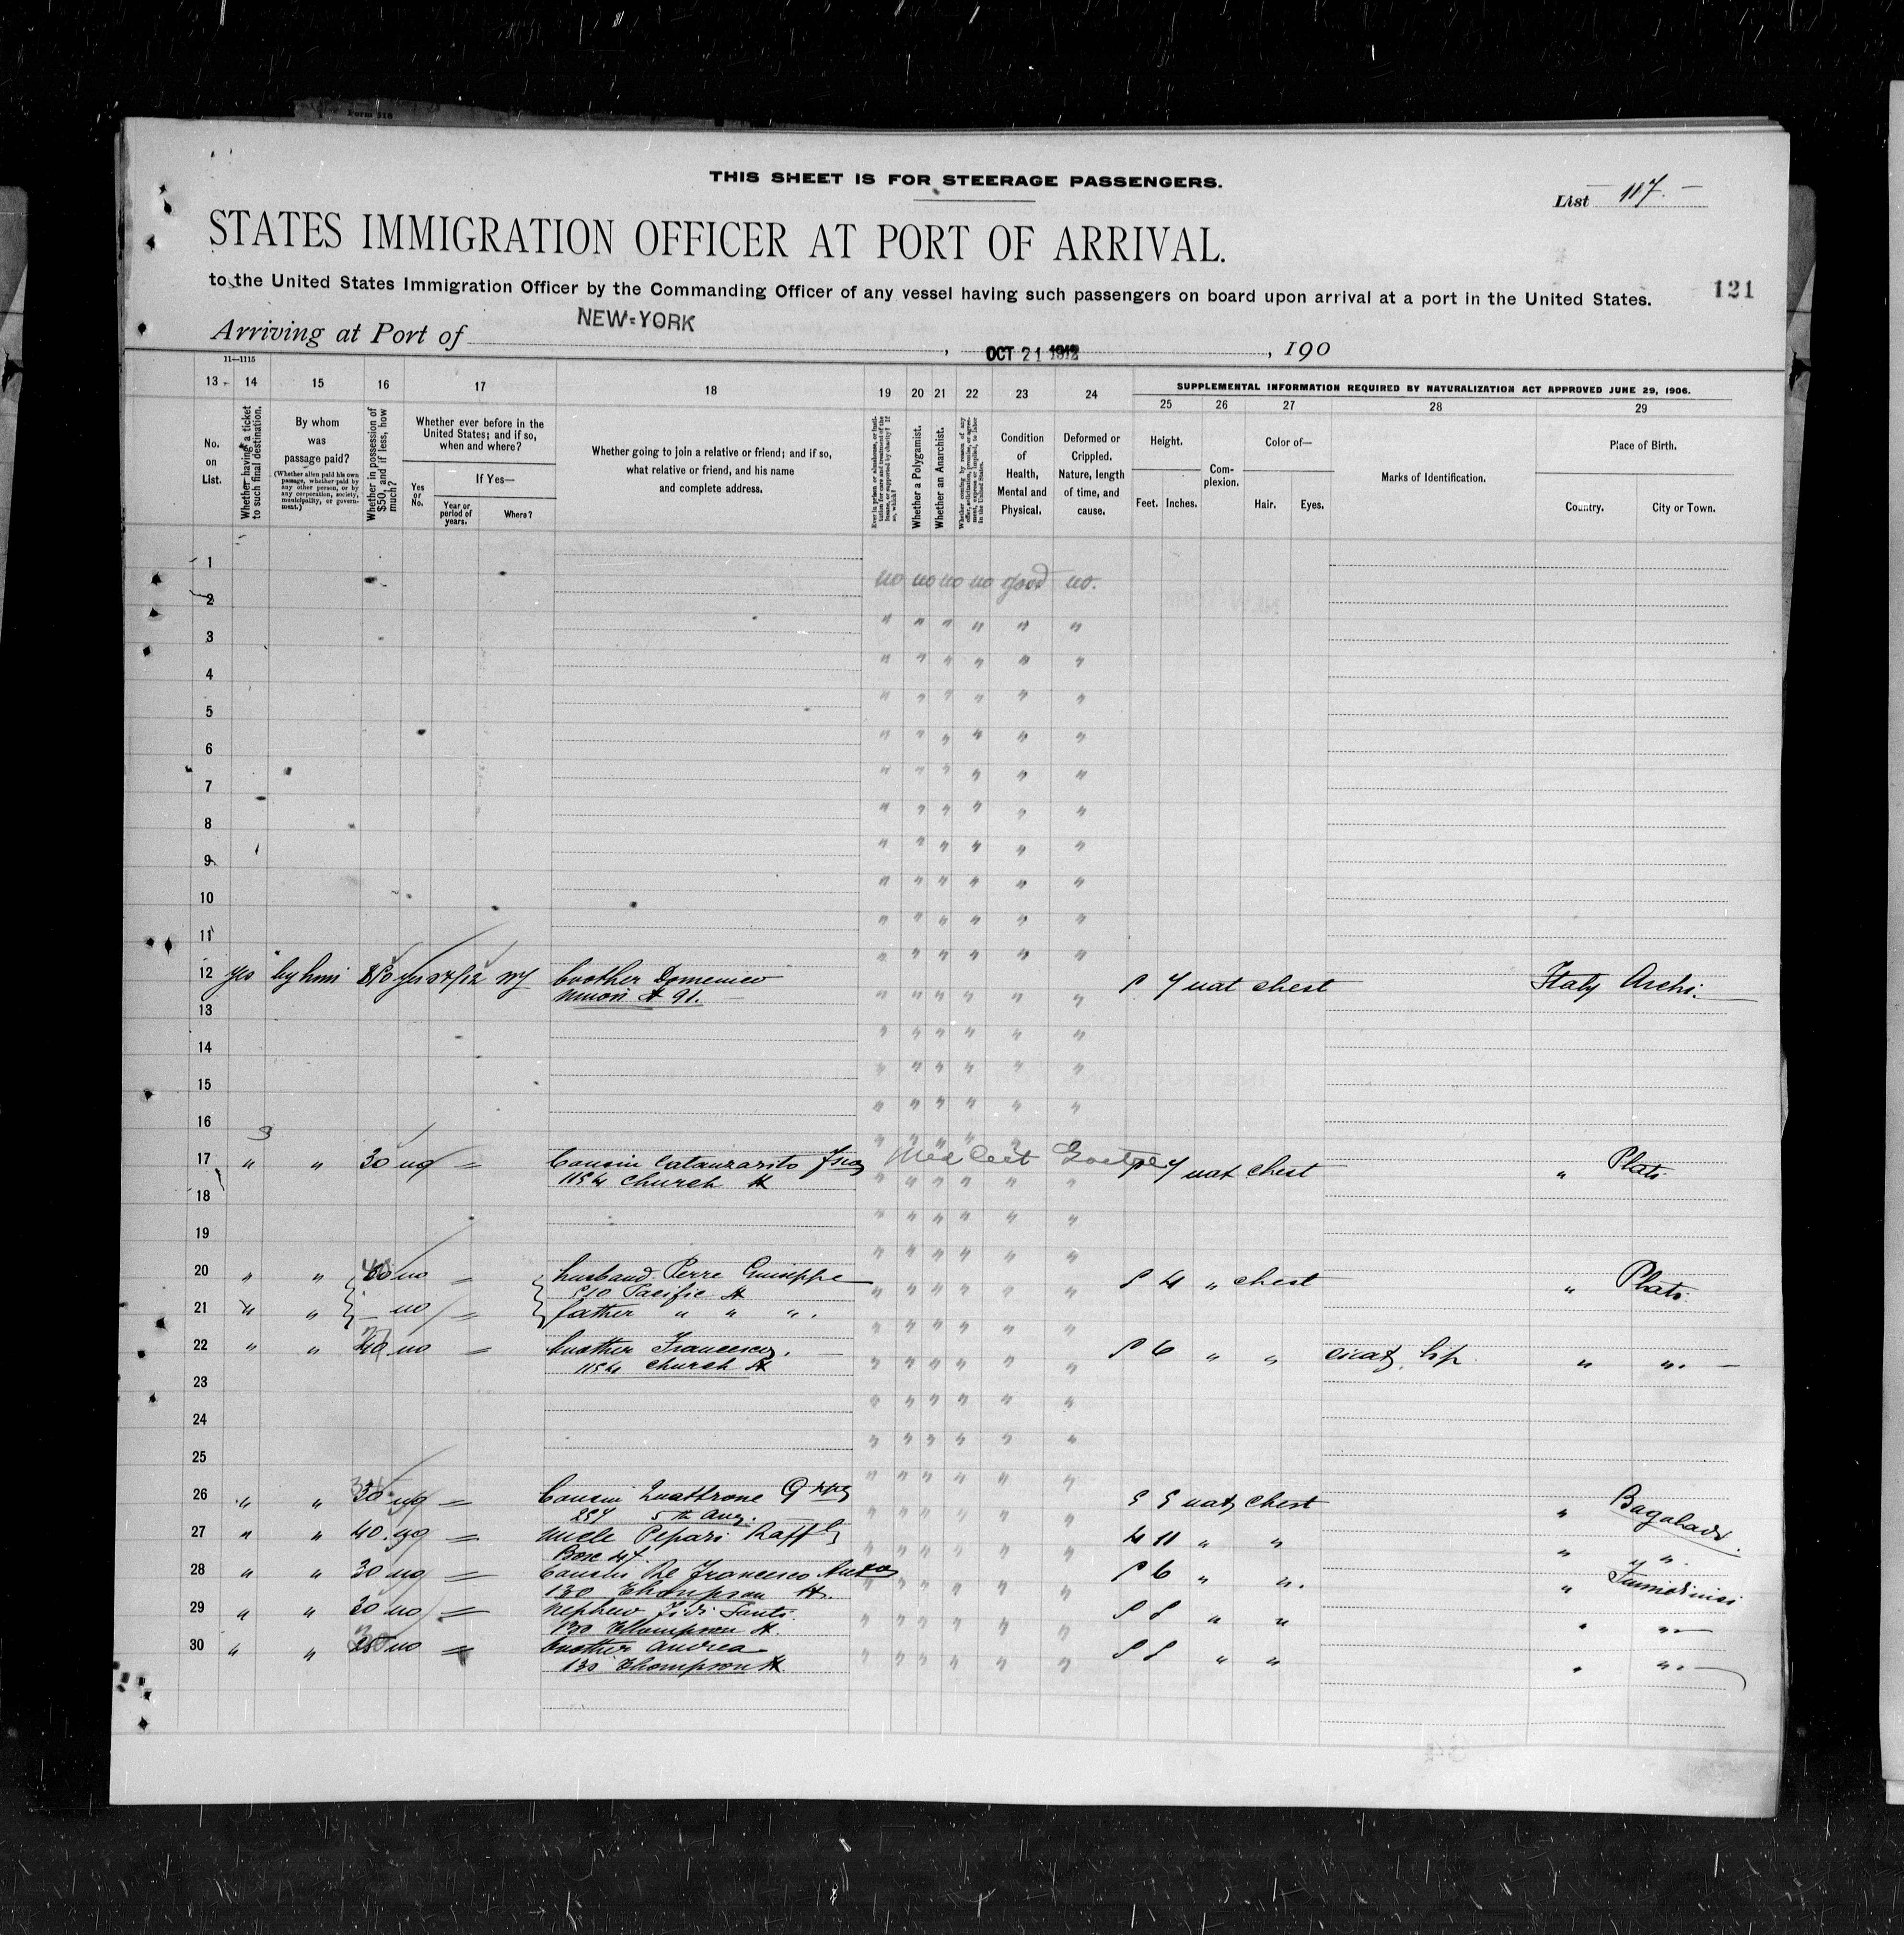 Form 318
THIS SHEET IS FOR STEERAGE PASSENGERS.
List 117.
STATES IMMIGRATION OFFICER AT PORT OF ARRIVAL.
to the United States Immigration Officer by the Commanding Officer of any vessel having such passengers on board upon arrival at a port in the United States.
121
Arriving at Port of NEW-YORK, OCT 21 1912, 190
11—1115
13 14 15 16 17 18 19 20 21 22 23 24
SUPPLEMENTAL INFORMATION REQUIRED BY NATURALIZATION ACT APPROVED JUNE 29, 1906.
25 26 27 28 29
No. on List.
Whether having a ticket to such final destination.
By whom was passage paid?
(Whether alien paid his own passage, whether paid by any other person, or by any corporation, society, municipality, or government.)
Whether in possession of $50, and if less, how much?
Whether ever before in the United States; and if so, when and where?
Yes or No.
If Yes—
Year or period of years.
Where?
Whether going to join a relative or friend; and if so, what relative or friend, and his name and complete address.
Ever in prison or almshouse, or institution for care and treatment of the insane, or supported by charity? If so, which?
Whether a Polygamist.
Whether an Anarchist.
Whether coming by reason of any offer, solicitation, promise, or agreement, express or implied, to labor in the United States.
Condition of Health, Mental and Physical.
Deformed or Crippled. Nature, length of time, and cause.
Height.
Feet. Inches.
Complexion.
Color of—
Hair. Eyes.
Marks of Identification.
Place of Birth.
Country. City or Town.
1
no no no no good no.
2 " " " " " "
3 " " " " " "
4 " " " " " "
5 " " " " " "
6 " " " " " "
7 " " " " " "
8 " " " " " "
9 " " " " " "
10 " " " " " "
11 " " " " " "
12 yes by him yes 12 NY brother Domenico 7 nat chest Italy Archi.
91.
13 " " " " " "
14 " " " " " "
15 " " " " " "
16 " " " " " "
17 " " 30 no = Cousin Catanzarito 7 nat chest " Plati
1154 Church St
18 " " " " " "
19 " " " " " "
20 " " no = husband Perre Giuseppe 5 4 " chest " Plati.
510 Pacific St
21 " " no = father " " ".
22 " " no = brother Francesco. 5 6 " " cicat. lip " ".
1154 Church St
23 " " " " " "
24 " " " " " "
25 " " " " " "
26 " " 30 no = Cousin Quattrone 5 5 nat chest " Bagaladi
257 5th
27 " " 40 no = uncle Pepari 4 11 " " " " ".
Box 47
28 " " 30 no = Cousin De Francesco 5 6 " ". "
130 Thompson St.
29 " " 30 no = nephew Santi 5 5 " " " "
130 Thompson St.
30 " " no = brother Andrea 5 5 " " " "
130 Thompson St.